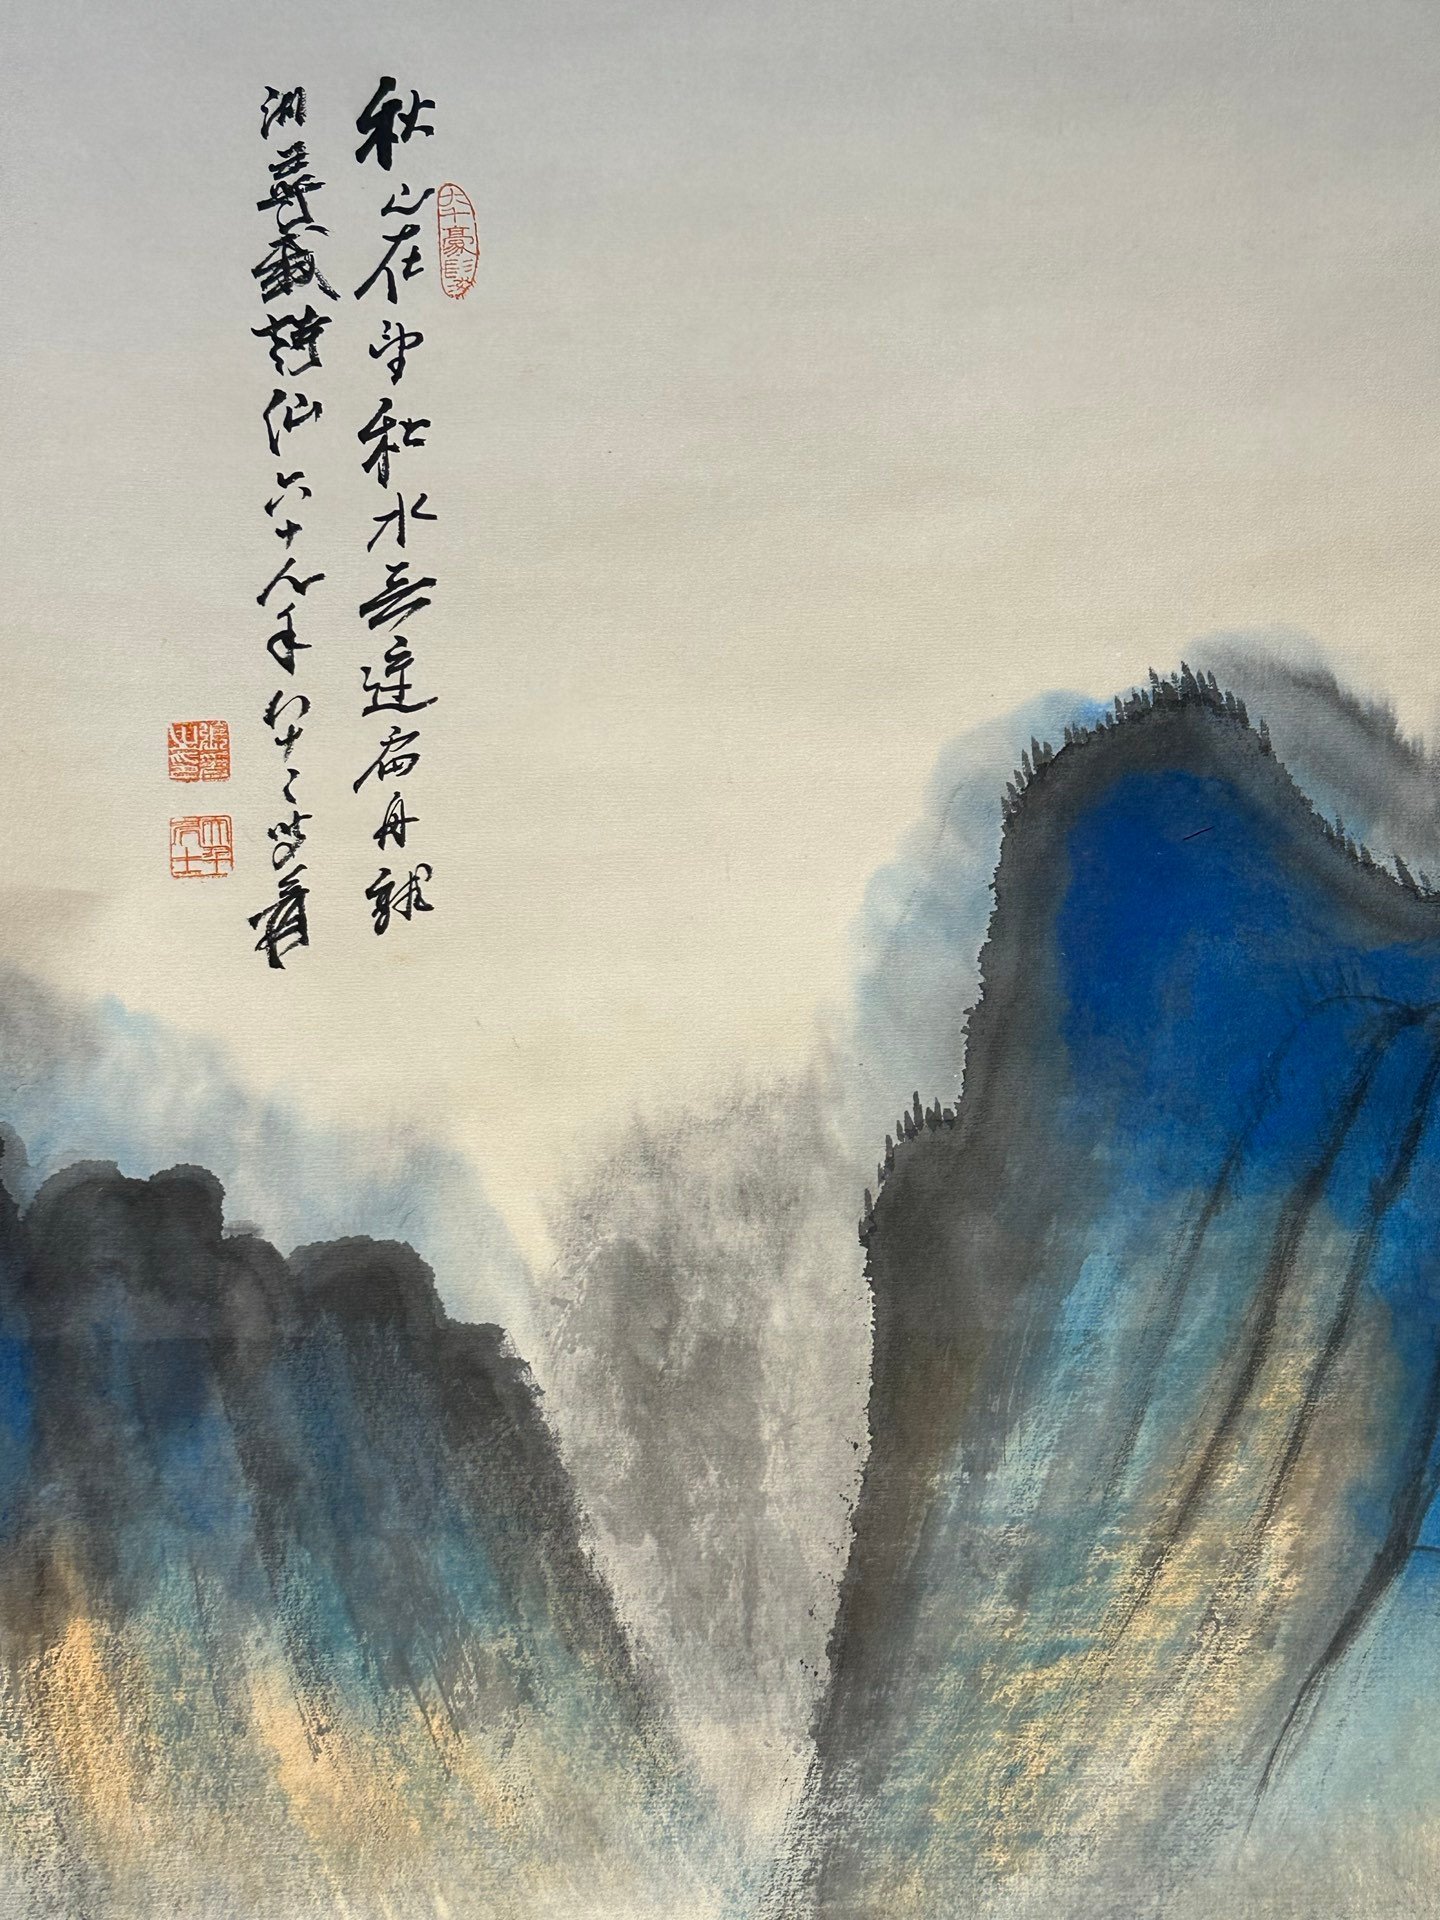 大千豪髮
秋山在望秋水無邊扁舟就
湖載詩仙六十九年八十二爰
張爰之印
大千居士